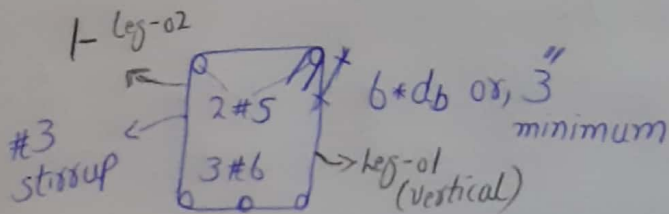 1- Leg-02
2#5
6*db or, 3"
minimum
#3
stirrup
3#6
Leg-01
(vertical)